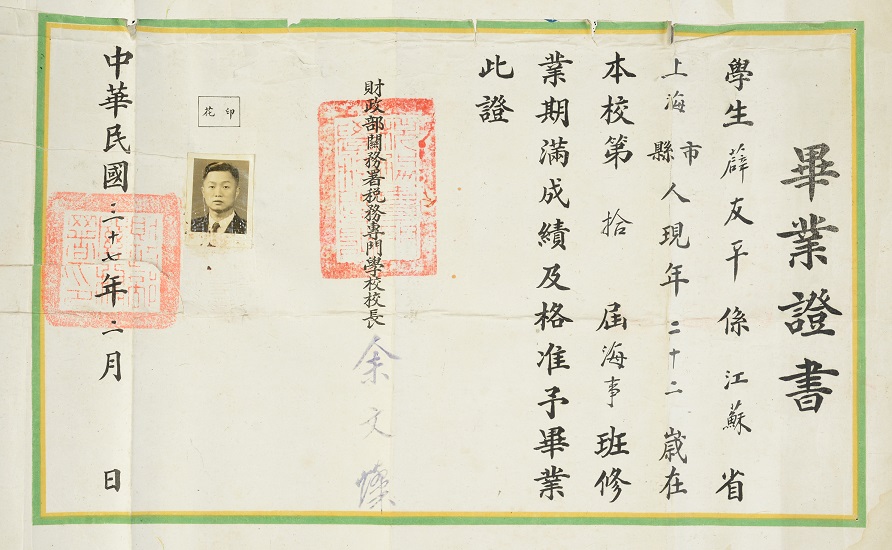 畢業證書
學生薛友平係江蘇省
上海市縣人現年二十二歲在
本校第拾屆海事班修
業期滿成績及格准予畢業
此證
財政部關務署稅務專門學校校長余文燦
印花
中華民國三十七年二月 日